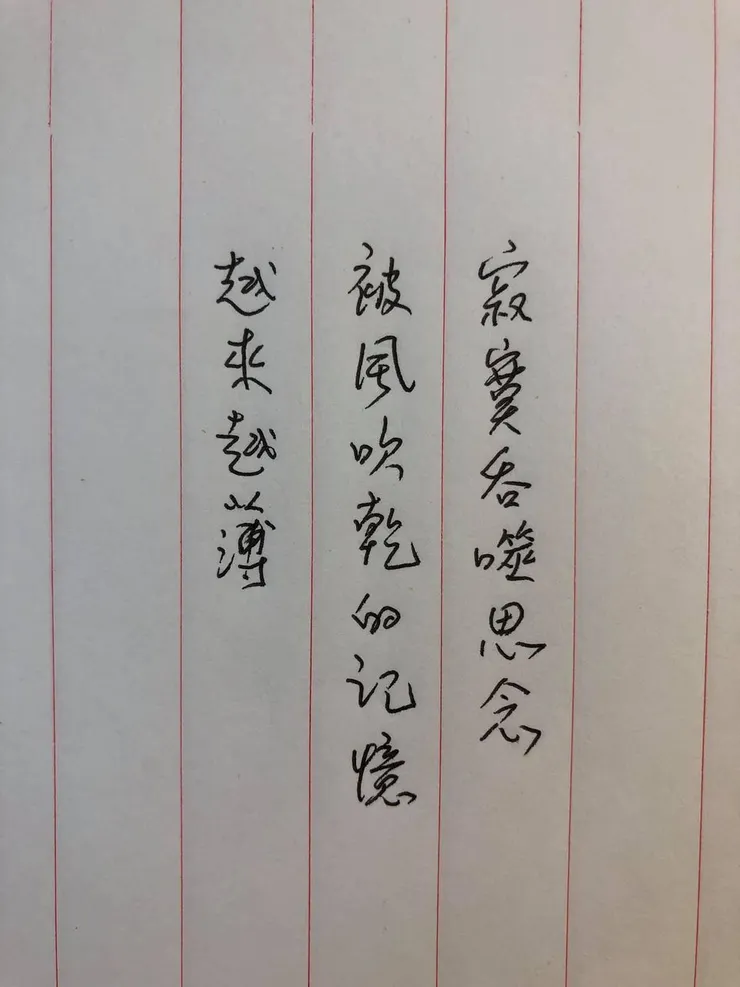 寂寞吞噬思念
被風吹乾的记憶
越来越薄